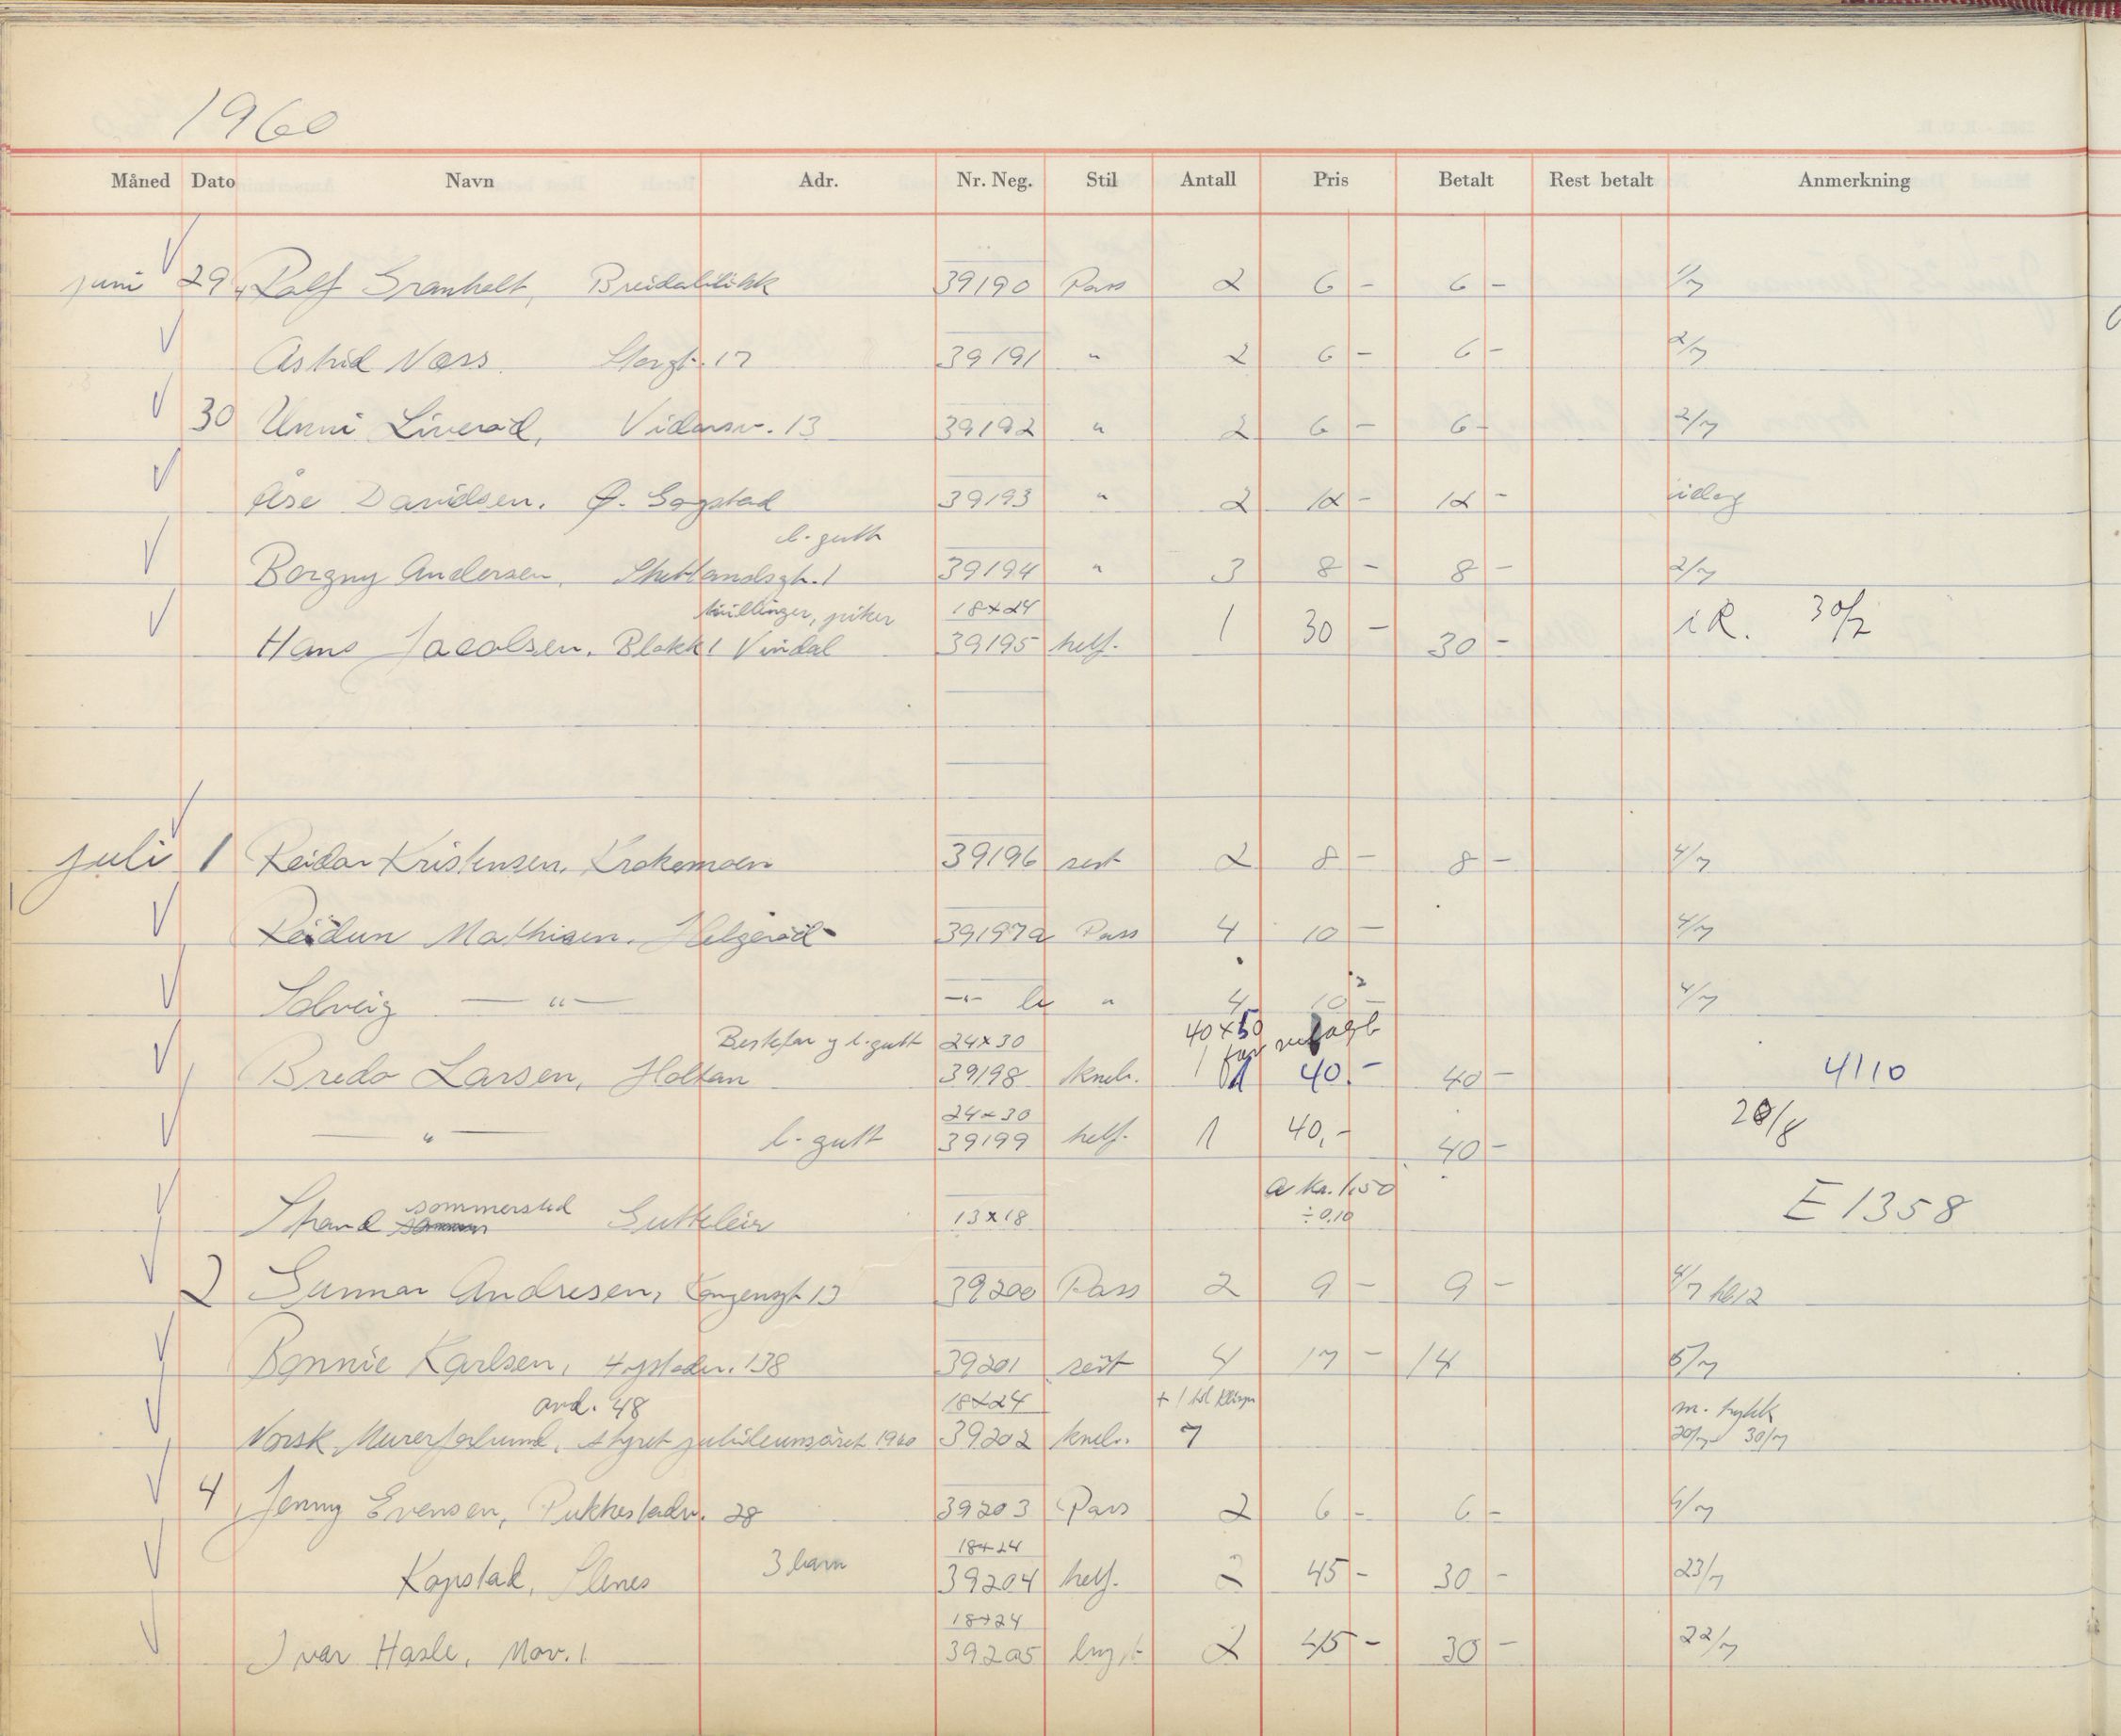 1960
Måned Dato Navn Adr. Nr. Neg. Stil Antall Pris Betalt Rest betalt Anmerkning
juni 29 Ralf Granholt, Breidablikk 39190 Pass 2 6 - 6 - 1/7
Astrid Næss Storgt. 17 39191 " 2 6 - 6 - 2/7
30 Unni Liverød, Vidarsv. 13 39192 " 2 6 - 6 - 2/7
Åse Davidsen. Ø. Gogstad 39193 " 2 12 - 12 - idag
l. gutt
Borgny Andersen, Shetlandsgt. 1 39194 " 3 8 - 8 - 2/7
tvillinger, piker 18x24
Hans Jacobsen. Blokk 1 Vindal 39195 helf. 1 30 - 30 - i R. 30/7
juli 1 Reidar Kristensen, Krokemoen 39196 seet 2 8 - 8 - 4/7
Reidun Mathisen. Helgerød 39197a Pass 4 10 - 4/7
Solveig — " — — " — b " 4 10 - 4/7
Bestefar og l. gutt 24x30 40x50
Bredo Larsen, Holtan 39198 kneb. 1 40.- 40 - 4110
24x30
— " — l. gutt 39199 helf. 1 40,- 40 - 20/8
sommersted a kr. 1,50
Strand Gutteleir 13x18 ÷ 0,10 E 1358
2 Gunnar Andresen, Kongensgt 13 39200 Pass 2 9 - 9 - 4/7 kl 12
Bonnie Karlsen, 138 39201 4 17 - 14 5/7
avd. 48 18x24 + 1 m. trykk
Norsk Murerforbund, styret jubileumsåret 1960 39202 kneb. 7 30/7
4 Jenny Evensen, Pukkestadv. 28 39203 Pass 2 6 - 6 - 6/7
3 barn 18x24
Kopstad, Slenes 39204 helf. 2 45 - 30 - 23/7
18x24
Ivar Hasle, Mov. 1 39205 bryst 2 45 - 30 - 22/7